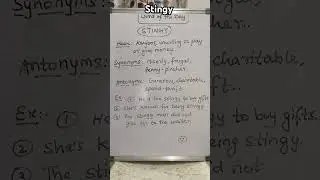 Stingy
Word of the Day
STINGY
Mean: Kanjoos, unwilling to pay
or give money.
Synonyms: Miserly, frugal,
penny-pincher.
Antonyms: Generous, charitable,
spend-thrift.
Ex: ① He is too stingy to buy gifts.
② She's known for being stingy.
③ The stingy man did not
tip to the
Synonyms
Antonyms:
charitable,
Ex: ①
to buy gifts.
② She's
stingy.
③
did not